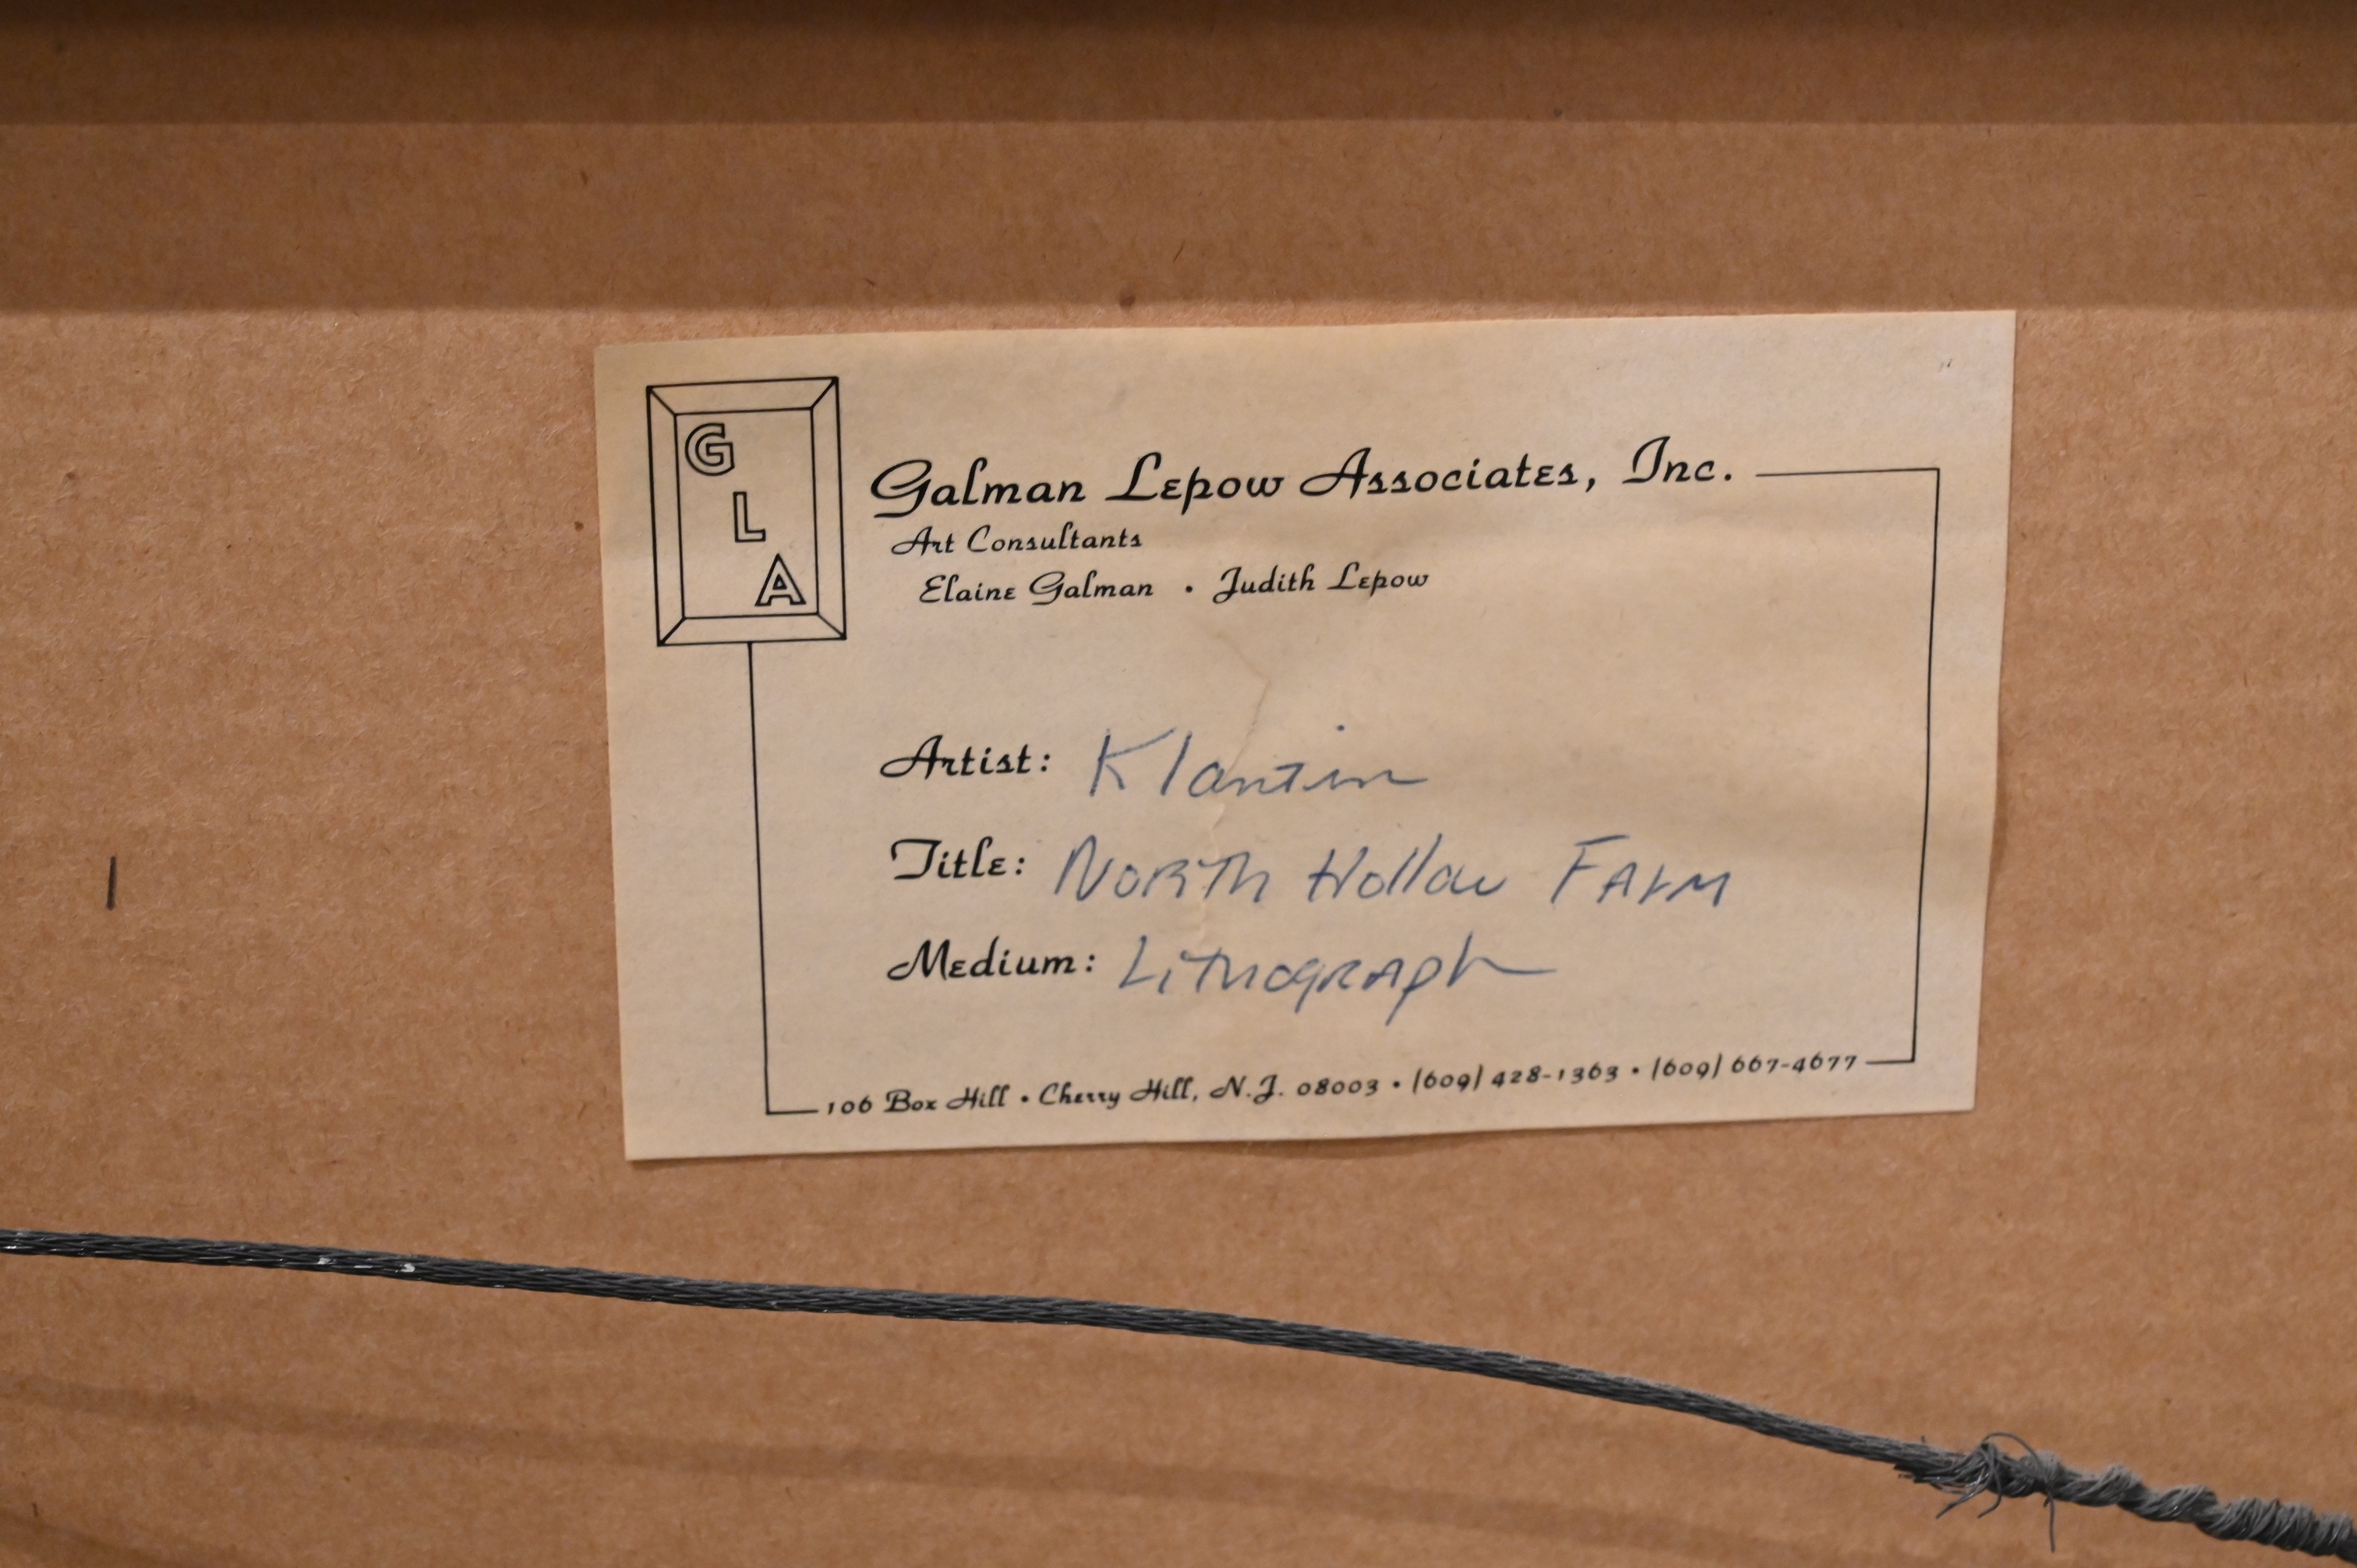 G
L
A
Galman Lepow Associates, Inc.
Art Consultants
Elaine Galman • Judith Lepow
Artist: Klantin
Title: North Hollow Farm
Medium: Lithograph
106 Box Hill • Cherry Hill, N.J. 08003 • (609) 428-1363 • (609) 667-4677